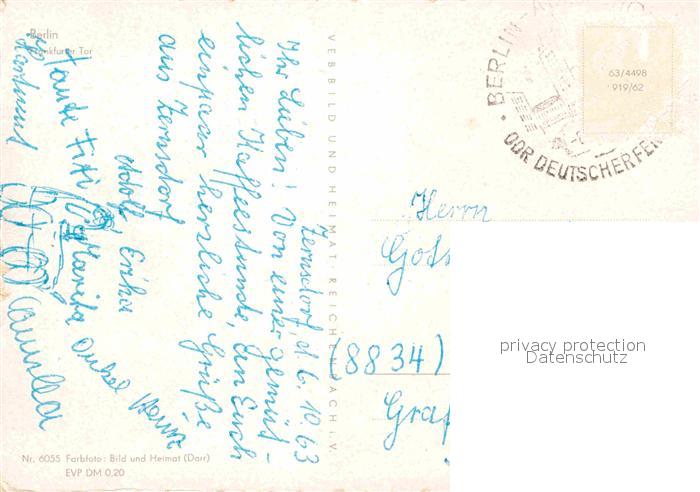 Berlin
Frankfurter Tor
Zernsdorf d. 6.10.63
Ihr Lieben! Von einer gemüt-
lichen Kaffeestunde, Ein Euch
ein paar herzliche Grüße
aus Zernsdorf
Adolf Erika
Tante Fifi Marita Onkel Heinz
Hartmut
VEB BILD UND HEIMAT · REICHENBACH I. V.
BERLIN
DDR DEUTSCHER FER
63/4498
919/62
Herrn
(8834)
Graf
privacy protection
Datenschutz
Nr. 6055 Farbfoto: Bild und Heimat (Darr)
EVP DM 0,20